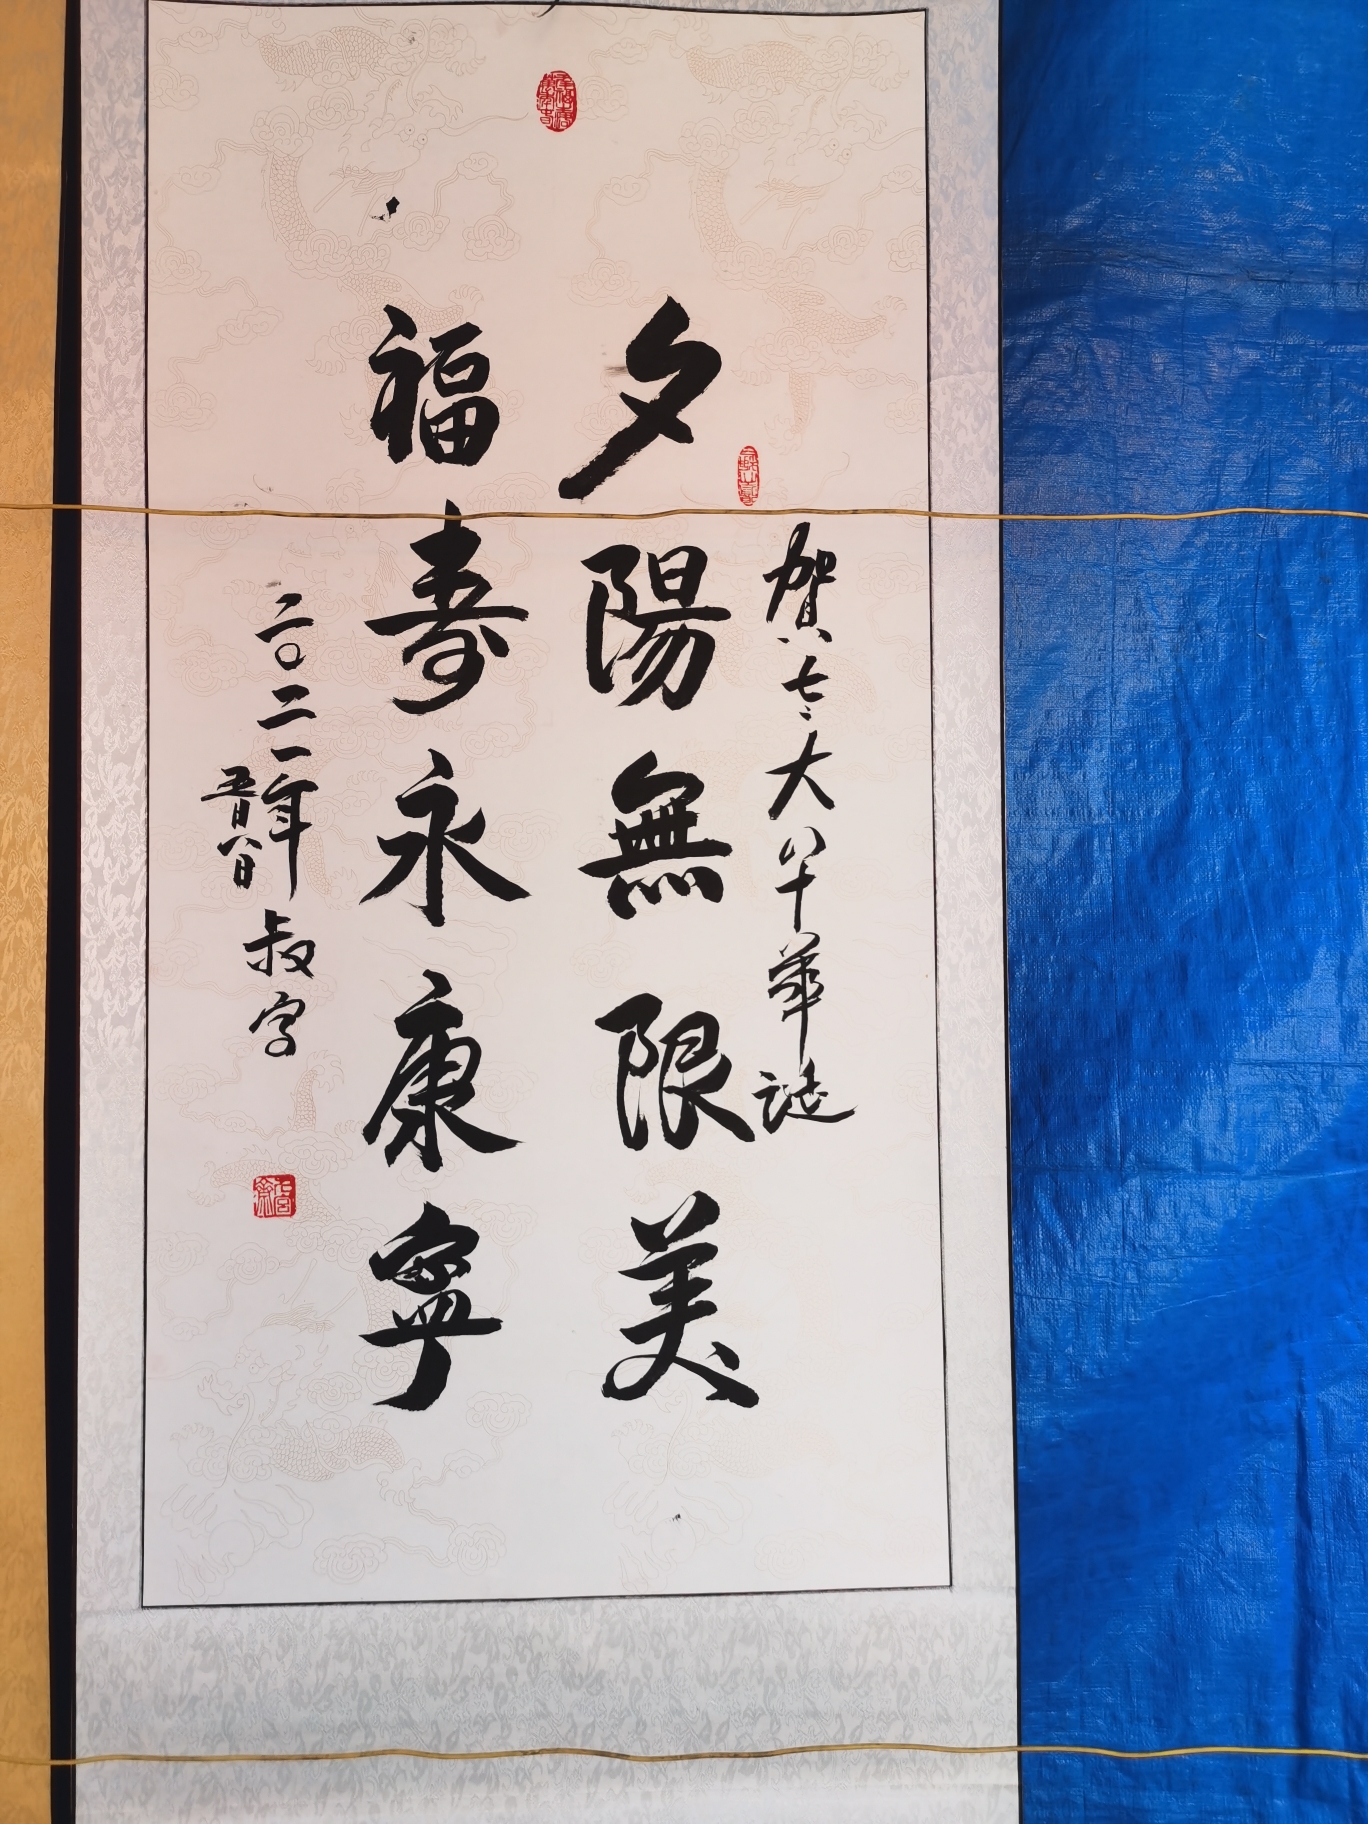 賀七大八十華誕
夕陽無限美
福壽永康寧
二〇二一年
五月八日
叔字